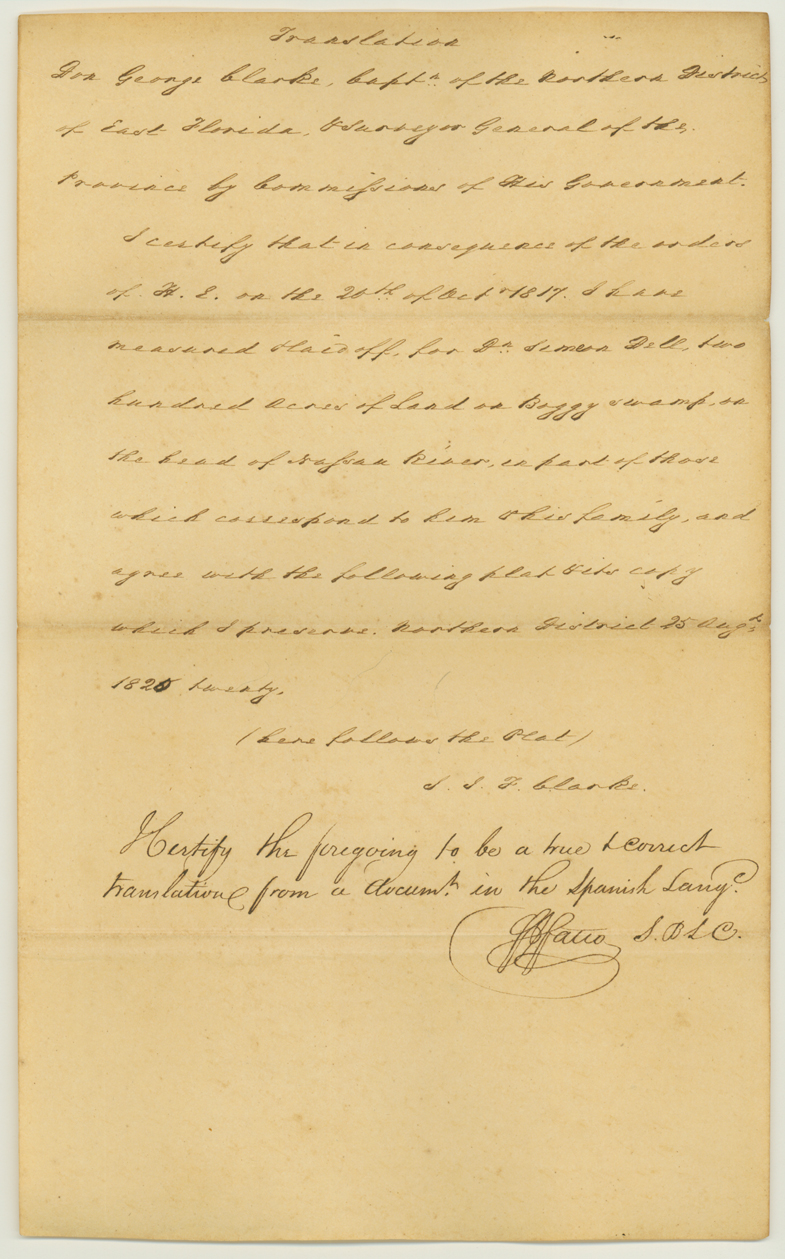 Translation
Don George Clarke, Capt.n of the Northern District
of East Florida, & Surveyor General of the
Province by Commissions of His Government.
I certify that in consequence of the orders
of H. E. on the 20th of Octr 1817. I have
measured & laid off, for Dn. Simeon Dell, two
hundred Acres of Land on Boggy swamp, on
the head of Nassau River, in part of those
which correspond to him & his family, and
agree with the following plat & its copy
which I preserve. Northern District 25 Augt
1820 twenty.
(here follows the Plat)
Clarke.
I Certify the foregoing to be a true & Correct
translation from a documt. in the Spanish Lange.